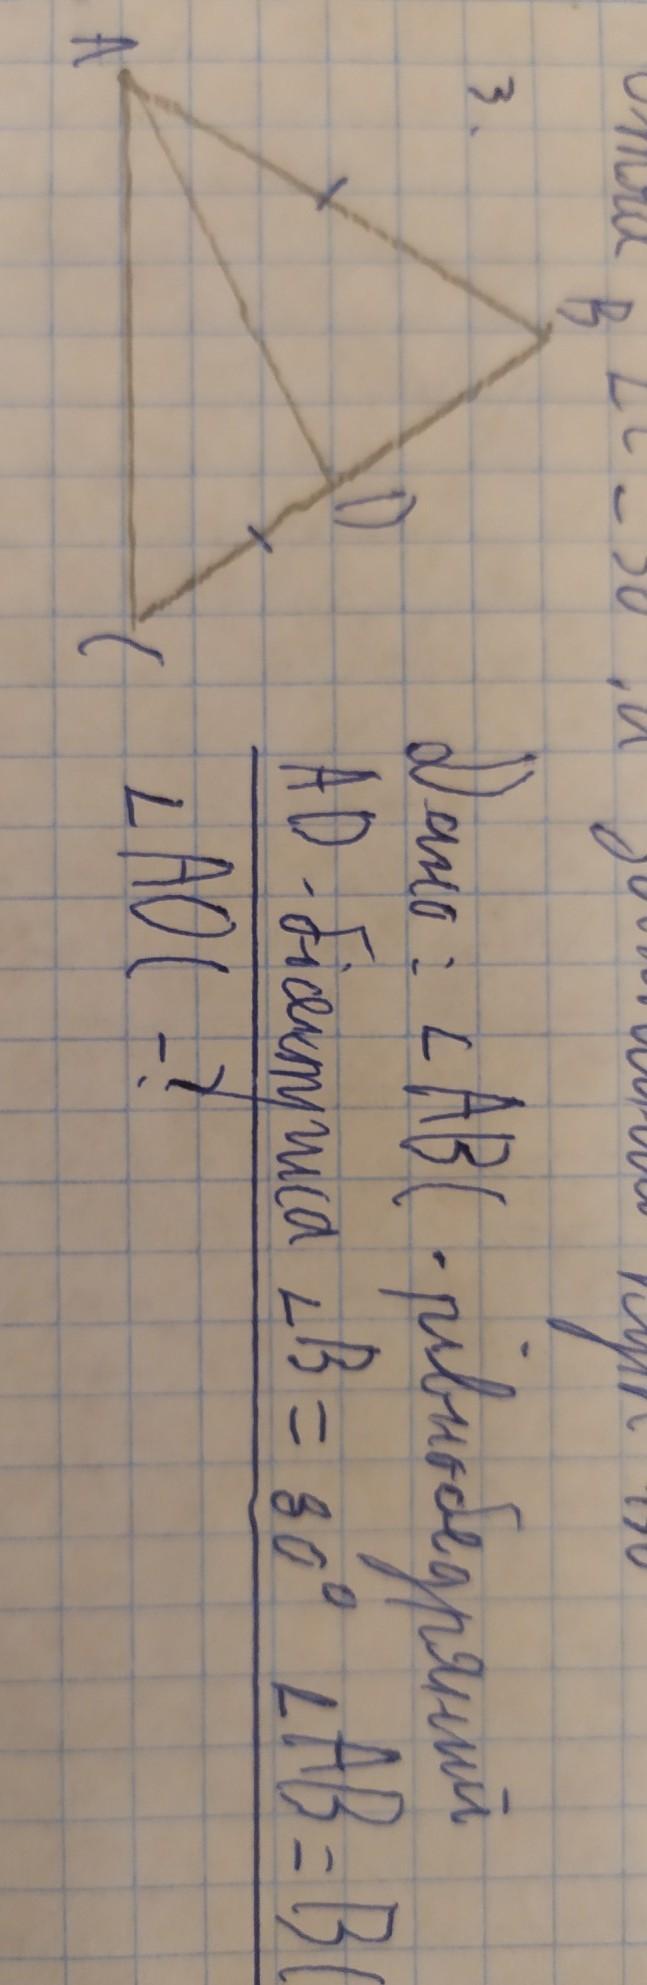 B ∠C = 50°, а
3.
A
B
D
C
Дано: ∠ABC - рівнобедряний
AD - бісектриса ∠B = 80° ∠AB = BC
∠ADC - ?